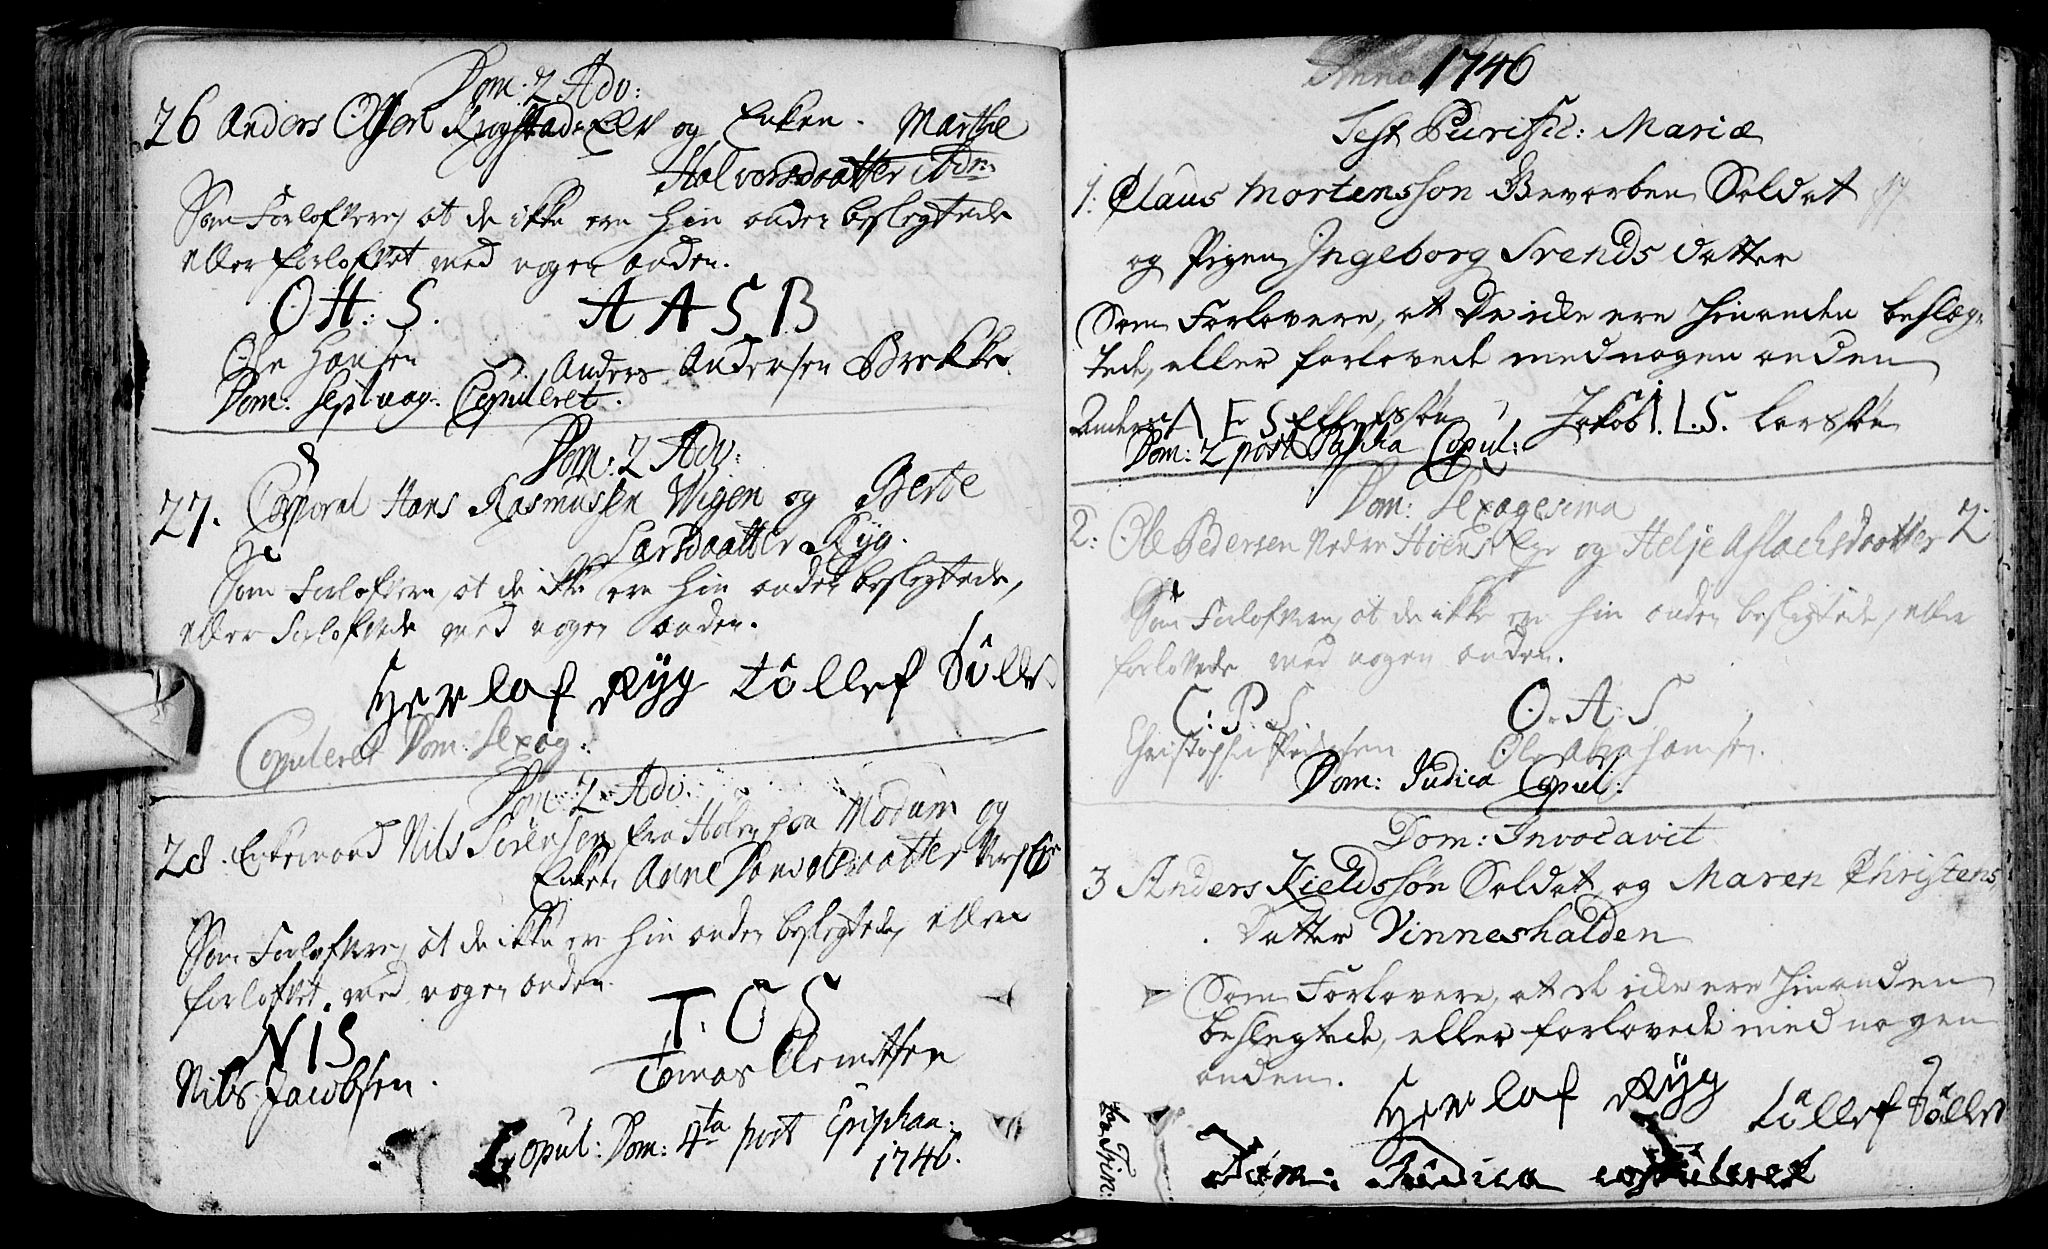 Dom: 2 Adv:
26 Anders Olsen Krogstad-Elv og Enken Marthe
Halvorsdaatter ibdm:
Som Forlofvere, at de ikke ere hin anden beslegtede
eller forlofvet med nogen anden.
O H: S. A A S B
Ole Hansen Anders Andersen Brekke.
Dom: Septuag: Copuleret.
Dom: 2 Adv:
27. Corporal Hans Rasmussen Wigen og Berte
Larsdaatter Ryg.
Som Forlofvere, at de ikke ere hin anden beslegtede,
eller forlofvede med nogen anden.
Herlof Ryg Tollef Solle
Copuleret Dom: Sexag:
Dom: 2 Adv:
28. Enkemand Nils Sørensen fra Holen paa Modum og
Enken Anne
Som Forlofvere, at de ikke ere hin anden beslegtede, eller
forlofvet, med nogen anden.
N I S T: C S
Nils Jacobsen. Tomas Clemetsen
Copul: Dom: 4ta post Epiphan:
1746.
Anno 1746
Fest Purific: Mariæ
1. Claus Mortensson Hverben Soldat
og Pigen Ingeborg Svends datter
Som Forlovere, at De icke ere Hinanden beslæg-
tede, eller forlovede med nogen anden
Anders A E S Jakob I. L. S. Larssøn
Dom: 2 post Pascha Copul:
Dom: Sexagesima
2: Ole Pedersen Nedre Hoens Eye og Helje Aslachsdaatter 2.
Som Forlofvere, at de ikke ere hin anden beslegtede, eller
forlovede med nogen anden.
C: P: S. O. A: S
Christopher Pedersen Ole Abrahamsen.
Dom: Judica Copul:
Dom: Invocavit
3 Anders Kieldssøn Soldat og Maren Christens
Datter Vinneshalden
Som Forlovere, at de icke ere Hinanden
beslegtede, eller forlovede med nogen
anden.
Herlof Ryg Tollef Solle
Dom: Judica copuleret